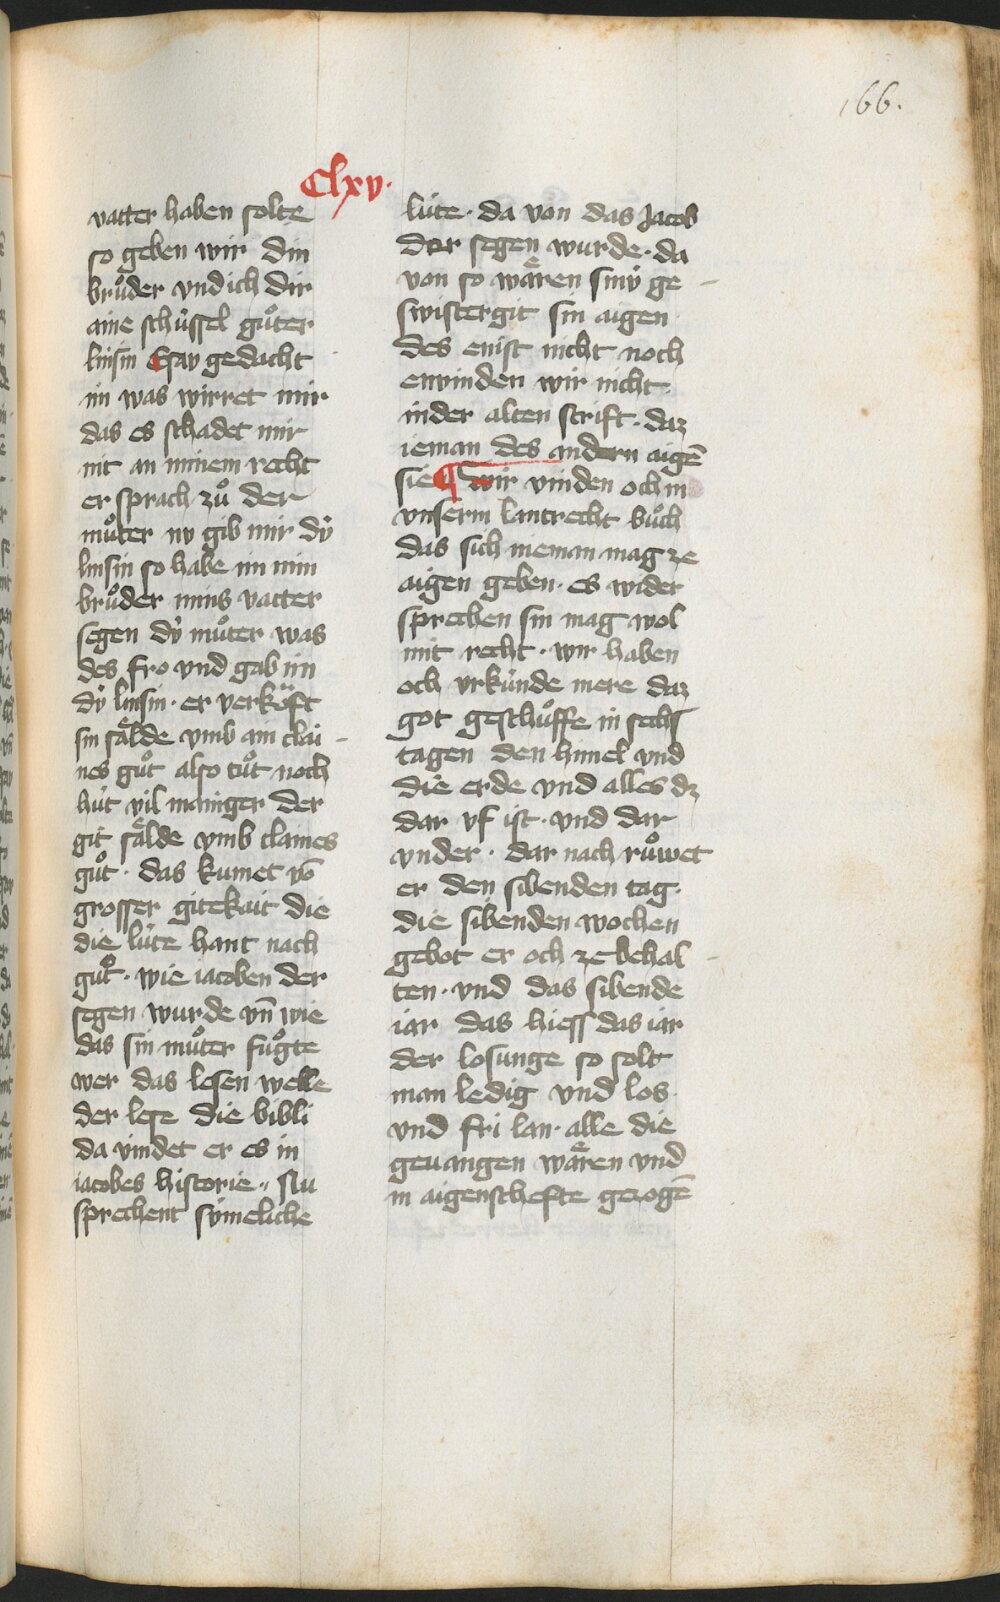 166.
Clxv.
vatter haben solte
so geben wir din
bruͦder vnd ich dir
aine schússel guͦter
linsin Esav gedacht
im was wirret mir
das es schadet mir
nit an minem recht
er sprach zuͦ der
muͦter nv gib mir dý
linsin so habe im min
bruͦder mins vatter
segen dý muͦter was
des fro vnd gab im
dý linsin · er verkoͧft
sin saͤlde vmb ain clai
nes guͦt also tuͦt noch
hút vil maniger der
git saͤlde vmb claines
guͦt · das kumet vō
grosser gitekait die
die lúte hant nach
guͦt · wie iacoben der
segen wurde vn̄ wie
das sin muͦter fuͦgte
wer das lesen welle
der lese die bibli
da vindet er es in
iacobes historie · Nu
sprechent súmeliche
lúte · da von das Jacob
der segen wurde · da
von so waͤren siný ge
swistergit sin aigen
des enist nicht noch
envinden wir nicht
inder alten scrift · daz
ieman des andern aigē
sie ¶ wir vinden och in
vnserm lantrecht buͦch
das sich nieman mag ze
aigen geben · es wider
sprechen sin mag wol
mit recht · wir haben
och vrkúnde mere daz
got geschuͦffe in sechs
tagen den himel vnd
die erde vnd alles dz
dar vf ist · vnd dar
vnder · dar nach ruͦwet
er den sibenden tag ·
die sibenden wochen
gebot er och ze behal
ten · vnd das sibende
iar das hiess das iar
der losunge so solt
man ledig vnd los
vnd fri lan · alle die
geuangen waͤren vnd
in aigenschefte gezogē